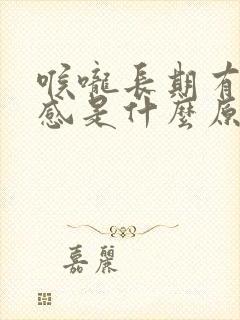 喉嚨長期有
感是什麼原
嘉麗